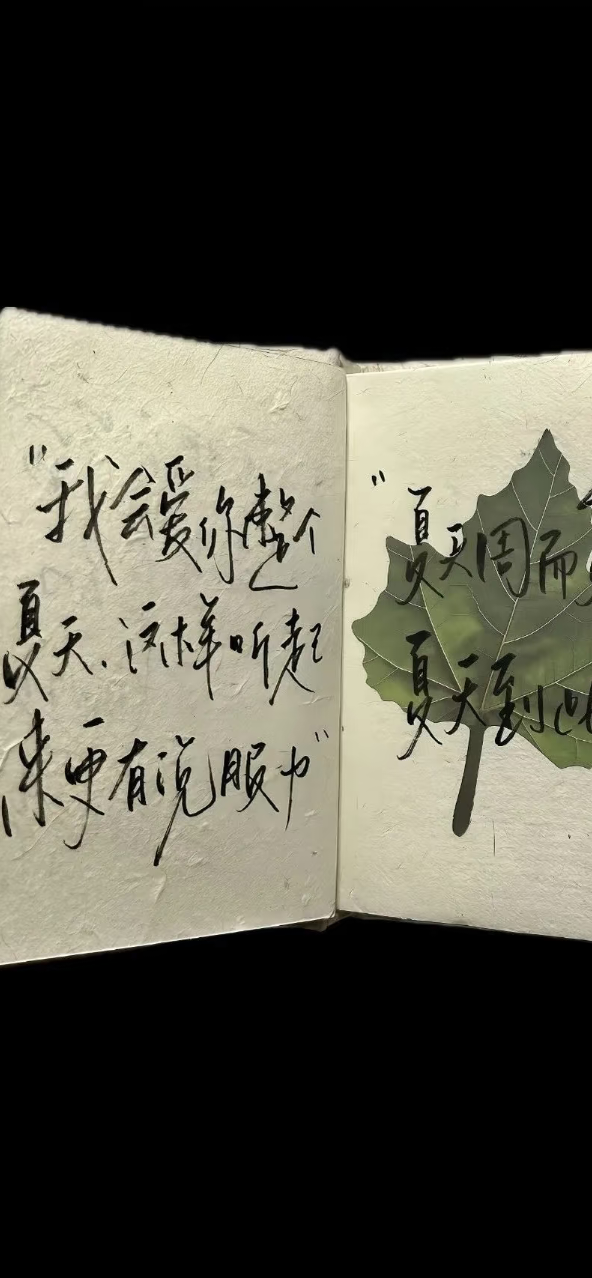 "我会爱你整个
夏天.这样听起
来更有说服力"
"夏天周而
夏天到此